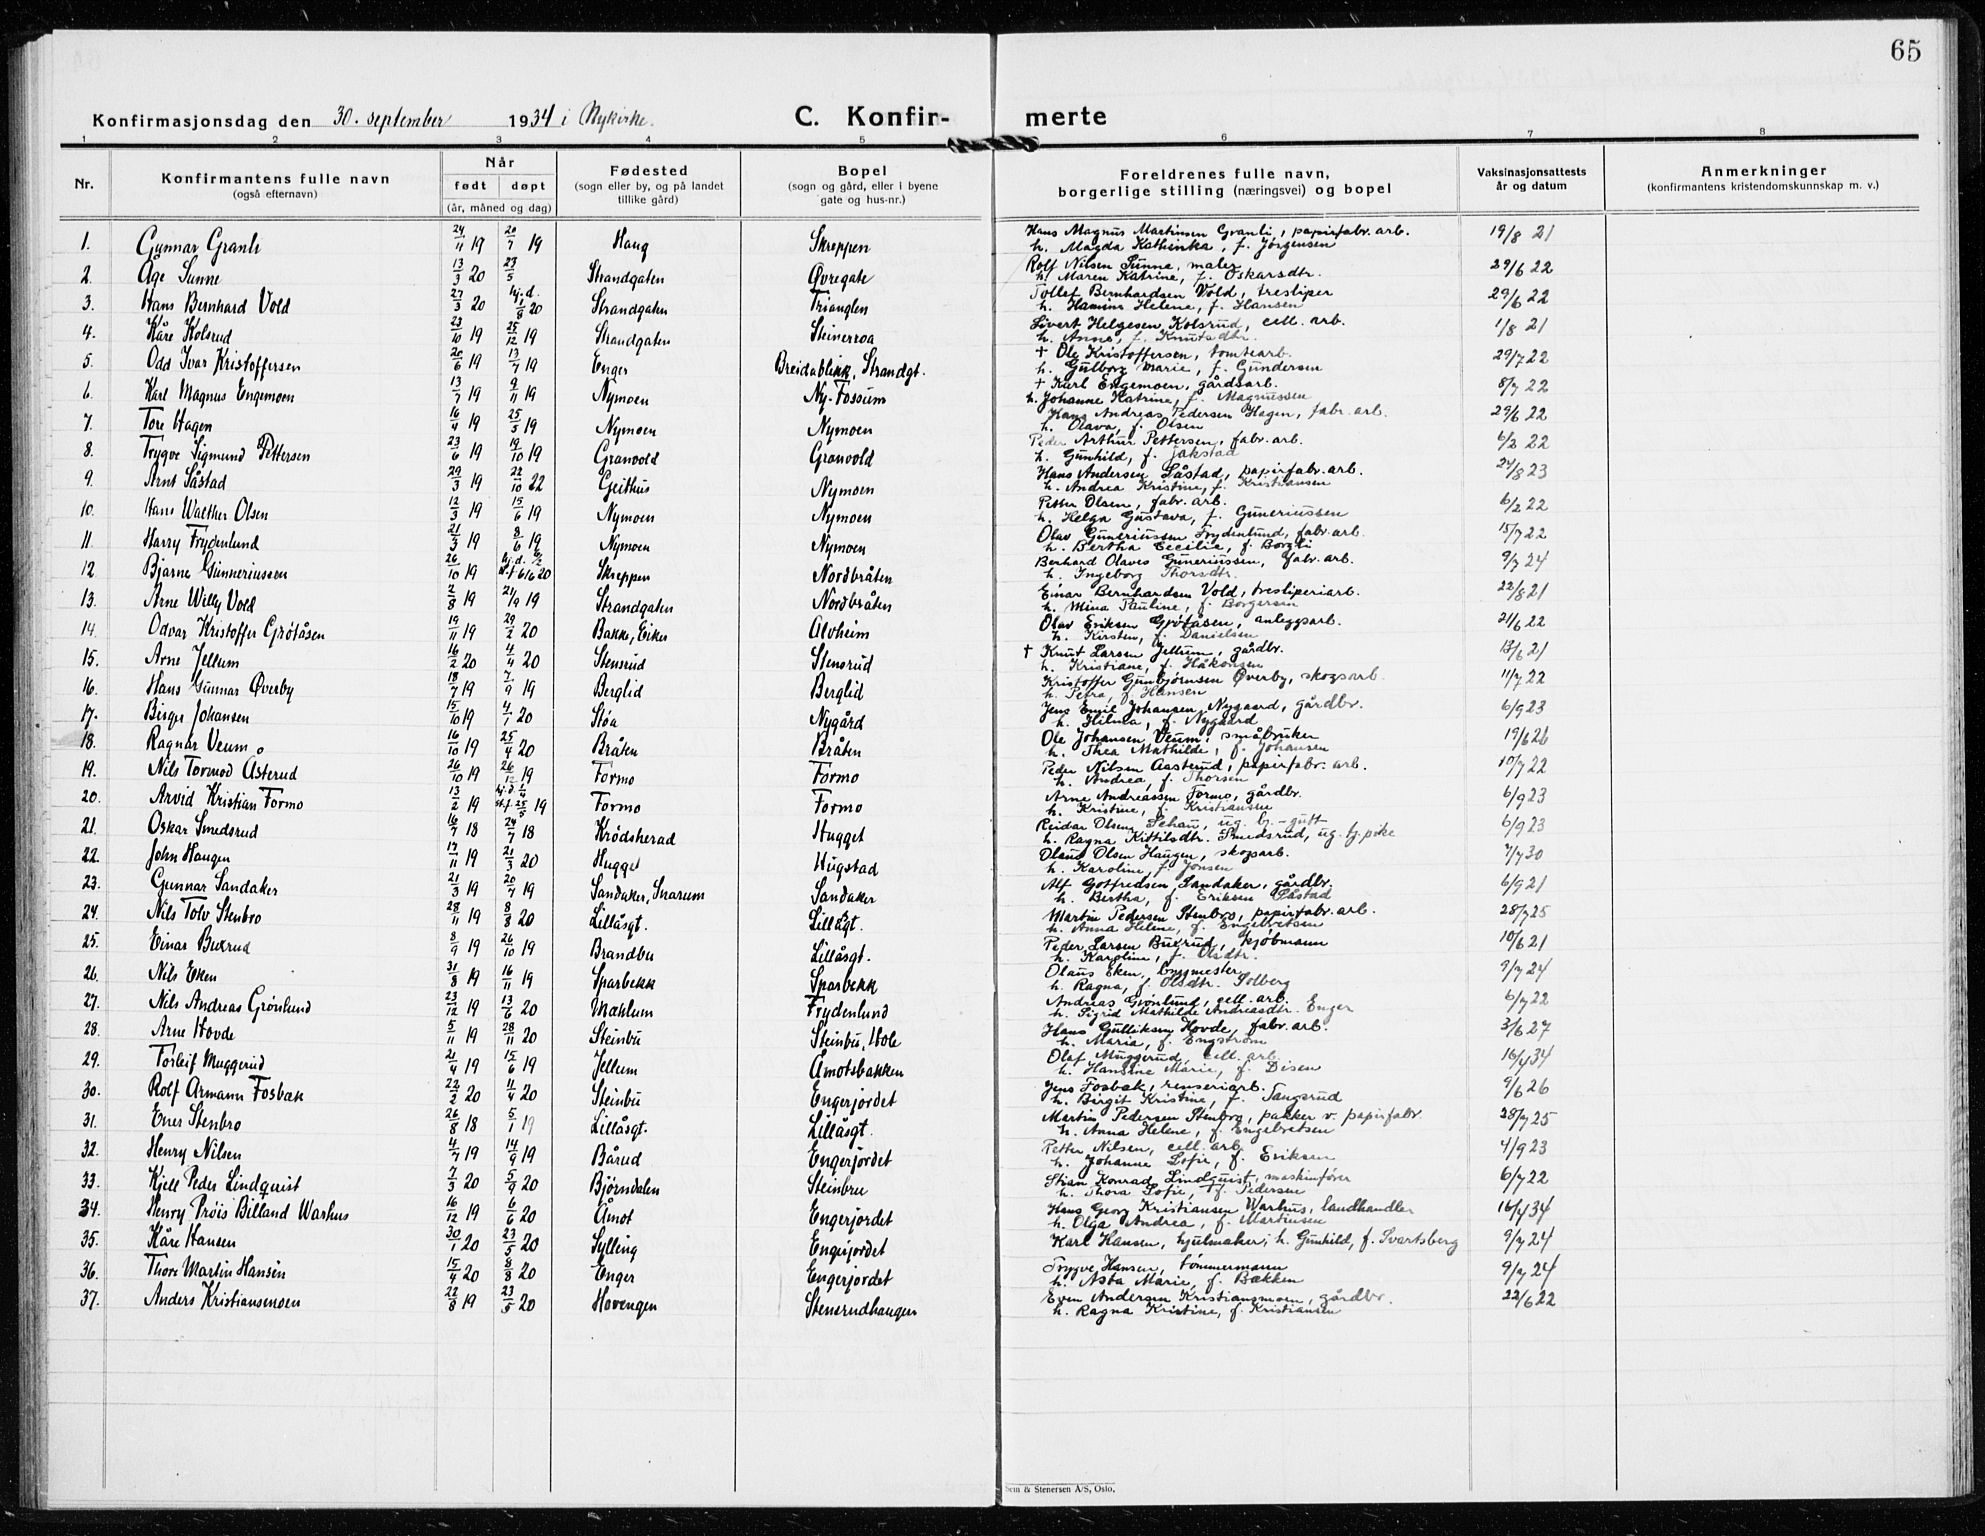 65
Konfirmasjonsdag den 30. september 1934 i Nykirke. C. Konfir- merte
1 2 3 4 5 6 7 8
Nr. Konfirmantens fulle navn (også efternavn) Når født døpt (år, måned og dag) Fødested (sogn eller by, og på landet tillike gård) Bopel (sogn og gård, eller i byene gate og hus-nr.) Foreldrenes fulle navn, borgerlige stilling (næringsvei) og bopel Vaksinasjonsattests år og datum Anmerkninger (konfirmantens kristendomskunnskap m. v.)
1. Gunnar Granli 24/11 19 20/7 19 Haug Skreppen Hans Magnus Martinsen Granli, papirfabr. arb. 19/8 21
h. Magda Kathinka, f. Jørgensen
2. Åge Sunne 13/3 20 23/5 Strandgaten Øvregate Rolf Nilsen Sunne, maler 29/6 22
h. Maren Katrine, f. Oskarsdtr.
3. Hans Bernhard Vold 27/3 20 hj.d. 1/8 20 Strandgaten Trianglen Tollef Bernhardsen Vold, tresliper 29/6 22
h. Hamine Helene, f. Hansen
4. Kåre Kolsrud 23/10 19 25/12 19 Strandgaten Steinerroa Sivert Helgesen Kolsrud, cell. arb. 1/8 21
h. Anne, f. Knutsdtr.
5. Odd Ivar Kristoffersen 20/6 19 13/7 19 Enger Breidablikk, Strandgt. † Ole Kristoffersen, tomtearb. 29/7 22
h. Gulborg Marie, f. Gundersen
6. Karl Magnus Engemoen 13/7 19 9/11 19 Nymoen Ny-Fossum † Karl Engemoen, gårdsarb. 8/7 22
h. Johanne Katrine, f. Magnussen
7. Tore Hagen 16/4 19 25/5 19 Nymoen Nymoen Hans Andreas Pedersen Hagen, fabr. arb. 29/6 22
h. Olava, f. Olsen
8. Trygve Sigmund Pettersen 23/6 19 19/10 19 Granvold Granvold Peder Arthur Pettersen, fabr. arb. 6/2 22
h. Gunhild, f. Jakstad
9. Arnt Såstad 29/3 19 22/10 22 Geithus Nymoen Hans Andersen Såstad, papirfabr. arb. 24/8 23
h. Andrea Kristine, f. Kristiansen
10. Hans Walther Olsen 12/3 19 15/6 19 Nymoen Nymoen Petter Olsen, fabr. arb. 6/2 22
h. Helga Gustava, f. Guneriussen
11. Harry Frydenlund 21/3 19 8/6 19 Nymoen Nymoen Olav Guneriussen Frydenlund, fabr. arb. 15/7 22
h. Bertha Cecilie, f. Borgli
12 Bjarne Gunneriussen 26/10 19 hj.d. st.f. 6/6 20 Skreppen Nordbråten Berhard Olaves Guneriussen, fabr. arb. 9/7 24
h. Ingeborg Thorsdtr.
13. Arne Willy Vold 2/8 19 21/9 19 Strandgaten Nordbråten Einar Bernhardsen Vold, tresliperiarb. 22/8 21
h. Mina Pauline, f. Borgersen
14. Odvar Kristoffer Grøtåsen 19/11 19 29/2 20 Bakke, Eiker Alvheim Olav Eriksen Grøtåsen, anleggsarb. 21/6 22
h. Kirsten, f. Danielsen
15. Arne Jellum 16/2 20 4/4 20 Stensrud Stensrud † Knut Larsen Jellum, gårdbr. 17/6 21
h. Kristiane, f. Håkonsen
16. Hans Gunnar Øverby 18/7 19 7/9 19 Berglid Berglid Kristoffer Gunbjørnsen Øverby, skogsarb. 11/7 22
h. Petra, f. Hansen
17. Birger Johansen 15/10 19 4/1 20 Støa Nygård Jens Emil Johansen Nygaard, gårdbr. 6/9 23
h. Hilma, f. Nygaard
18. Ragnar Veum 16/10 19 25/4 20 Bråten Bråten Ole Johansen Veum, småbruker 19/6 26
h. Thea Mathilde, f. Johansen
19. Nils Tormod Åsterud 26/10 19 26/12 19 Formo Formo Peder Nilsen Aasterud, papirfabr. arb. 10/7 22
h. Andrea, f. Thorsen
20. Arvid Kristian Formo 13/2 19 hj.d. 1/4 st.f. 25/5 19 Formo Formo Arne Andreassen Formo, gårdbr. 6/9 23
h. Kristine, f. Kristiansen
21. Oskar Smedsrud 16/7 18 24/7 18 Krødsherad Hugget Reidar Olsen Schau, ug. bj.-gutt 6/9 23
h. Ragna Kittilsdtr. Smedsrud, ug. bj. pike
22. John Haugen 17/11 19 21/3 20 Hugget Hugstad Olaus Olsen Haugen, skogsarb. 7/7 30
h. Karoline, f. Jonsen
23. Gunnar Sandaker 21/3 19 20/7 19 Sandaker, Snarum Sandaker Alf Gotfredsen Sandaker, gårdbr. 6/9 21
h. Bertha, f. Eriksen Såstad
24. Nils Tolv Stenbro 28/11 19 8/8 20 Lillåsgt. Lillåsgt. Martin Pedersen Stenbro, papirfabr. arb. 28/7 25
h. Anna Helene, f. Engebretsen
25. Einar Buxrud 8/9 19 26/10 19 Brandbu Lillåsgt. Peder Larsen Buxrud, kjøbmann 10/6 21
h. Karoline, f. Olsdtr.
26. Nils Eken 31/8 19 16/11 19 Sparbekk Sparbekk Olaus Eken, byggmester 9/7 24
h. Ragna, f. Olsdtr. Solberg
27. Nils Andreas Grønlund 23/12 19 13/6 20 Mæhlum Frydenlund Andreas Grønlund, cell. arb. 6/7 22
h. Sigrid Mathilde Andreasdtr. Enger
28. Arne Hovde 5/11 19 28/11 20 Steinbu Steinbu, Hole Hans Gulliksen Hovde, fabr. arb. 3/6 27
h. Maria, f. Engstrøm
29. Torleif Muggerud 21/4 19 15/6 19 Jellum Åmotsbakken Olaf Muggerud, cell. arb. 16/4 34
h. Hansine Marie, f. Disen
30. Rolf Armann Fosbak 22/2 20 11/4 20 Steinbu Engerjordet Jens Fosbak, renseriarb. 9/6 26
h. Birgit Kristine, f. Tangsrud
31. Ener Stenbro 26/8 18 5/1 19 Lillåsgt. Lillåsgt. Martin Pedersen Stenbro, pakker v. papirfabr. 28/7 25
h. Anna Helene, f. Engebretsen
32. Henry Nilsen 4/7 19 14/9 19 Bårud Engerjordet Petter Nilsen, cell. arb. 4/9 23
h. Johanne Sofie, f. Eriksen
33. Kjell Peder Lindquist 7/3 20 5/9 20 Bjørndalen Steinbru Stian Konrad Lindquist, maskinfører 6/7 22
h. Thora Sofie, f. Pedersen
34. Henry Prøis Billand Warhus 16/12 19 6/6 20 Åmot Engerjordet Hans Georg Kristiansen Warhus, landhandler 16/4 34
h. Olga Andrea, f. Martinsen
35. Kåre Hansen 30/1 20 23/5 20 Sylling Engerjordet Karl Hansen, hjulmaker, h. Gunhild, f. Svartsberg 9/7 24
36. Thore Martin Hansen 15/4 20 8/8 20 Enger Engerjordet Trygve Hansen, tømmermann 9/7 24
h. Asta Marie, f. Bækken
37. Anders Kristiansmoen 22/8 19 23/5 20 Hovengen Stensrudhaugen Even Andersen Kristiansmoen, gårdbr. 22/6 22
h. Ragna Kristine, f. Kristiansen
Sem & Stenersen A/S, Oslo.